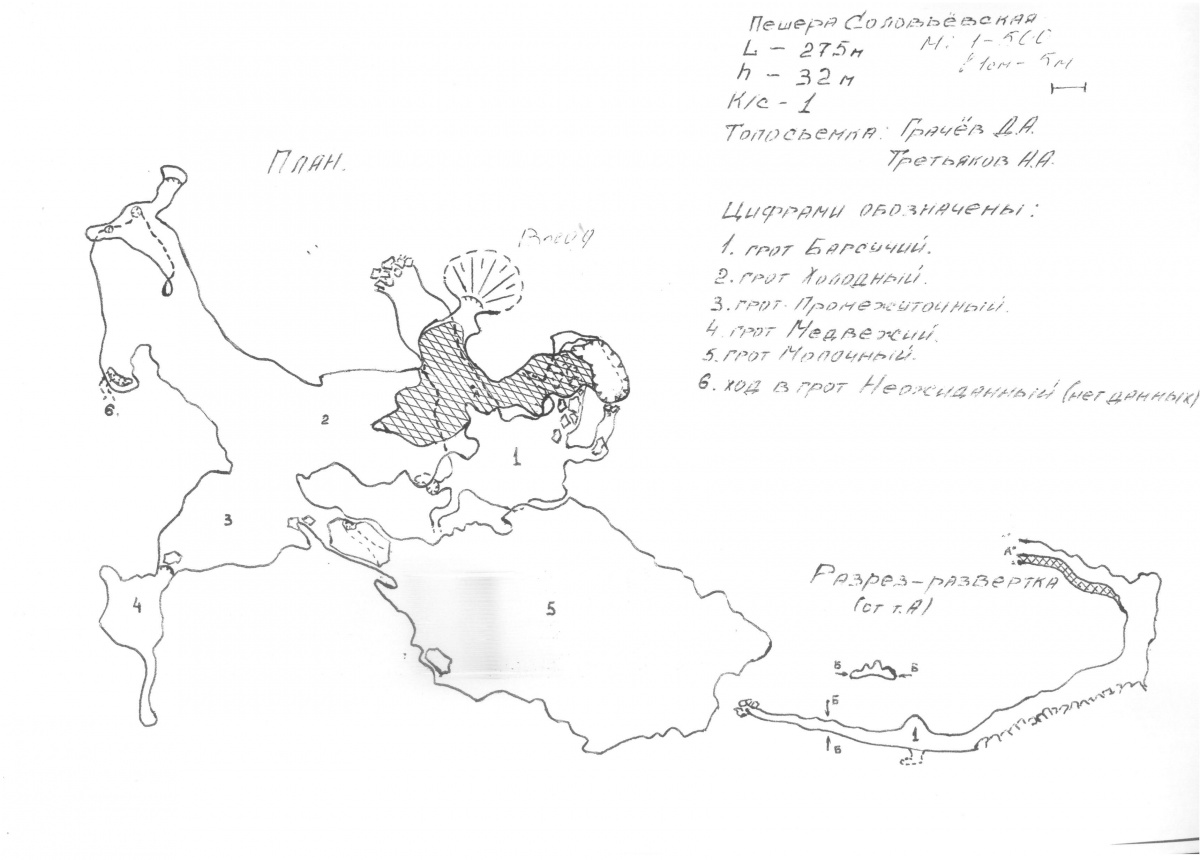 Пещера Соловьёвская
L - 275м
М: 1-500
h - 32 м
1см - 5м
К/с - 1
Топосъемка: Грачёв Д.А.
Третьяков Н.А.
План.
Цифрами обозначены:
Вход
1. грот Барсучий.
2. грот Холодный.
3. грот Промежуточный.
4. грот Медвежий.
5. грот Молочный.
6. ход в грот Неожиданный (нет данных)
6.
2
1
3
4
5
А
Разрез-развертка
(от т. А)
Б Б
Б
1
Б